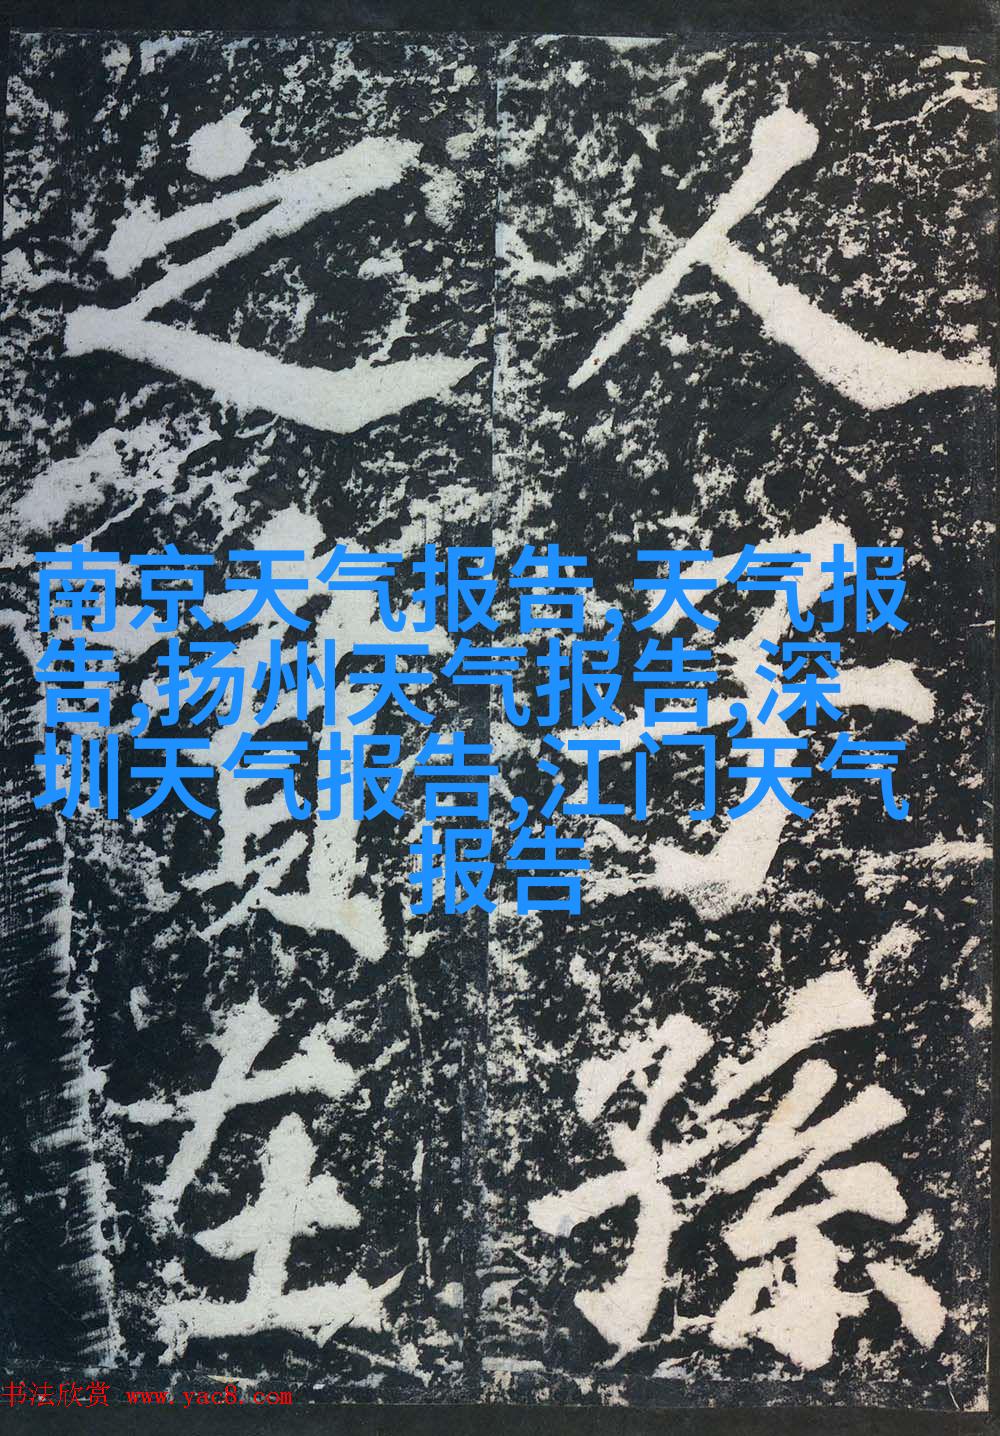 人子孫
之在
南京天气报告,天气报
告,扬州天气报告,深
圳天气报告,江门天气
报告
书法欣赏 www.yac8.com